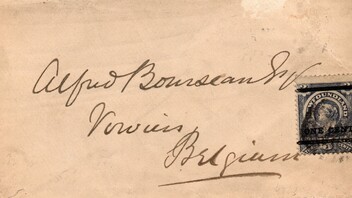 Alfred Bourseau Esq
Vervier,
Belgium
NEWFOUNDLAND
ONE CENT